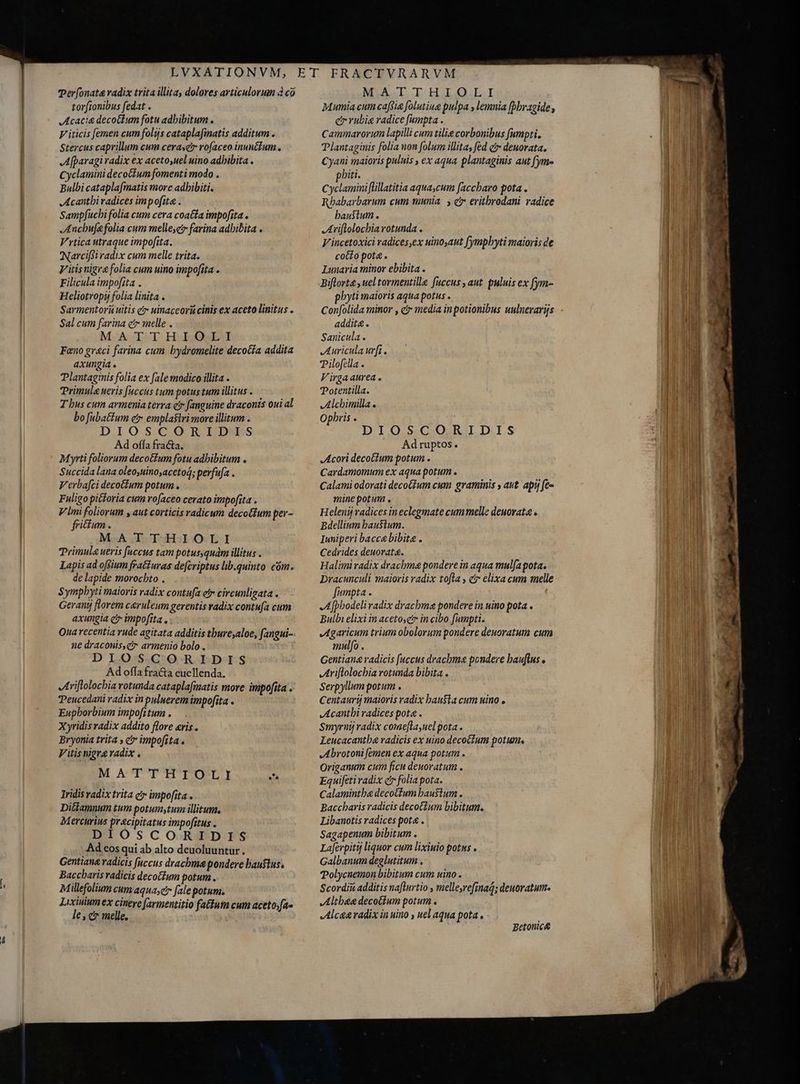 LVXATIONVM, ET FRACTVRARVM
Personatæ radix trita illita, dolores articulorum à cō
torsionibus sedat.
Acaciæ decoctum fotu adhibitum.
Viticis semen cum folijs cataplasmatis additum.
Stercus caprillum cum cera, & rosaceo inunctum.
Asparagi radix ex aceto, uel uino adhibita.
Cyclamini decoctum fomenti modo.
Bulbi cataplasmatis more adhibiti.
Acanthi radices impositæ.
Sampsuchi folia cum cera coacta imposita.
Anchusæ folia cum melle, & farina adhibita.
Vrtica utraque imposita.
Narcissi radix cum melle trita.
Vitis nigræ folia cum uino imposita.
Filicula imposita.
Heliotropij folia linita.
Sarmentorū uitis & uinaceorū cinis ex aceto linitus.
Sal cum farina & melle.
MATTHIOLI
Fœno græci farina cum hydromelite decocta addita
axungia.
Plantaginis folia ex sale modico illita.
Primulæ ueris succus tum potus tum illitus.
Thus cum armenia terra & sanguine draconis oui al
bo subactum & emplastri more illitum.
DIOSCORIDIS
Ad ossa fracta.
Myrti foliorum decoctum fotu adhibitum.
Succida lana oleo, uino, acetoq; perfusa.
Verbasci decoctum potum.
Fuligo pictoria cum rosaceo cerato imposita.
Vlmi foliorum, aut corticis radicum decoctum per-
frictum.
MATTHIOLI
Primulæ ueris succus tam potus, quàm illitus.
Lapis ad ossium fracturas descriptus lib. quinto cōm.
de lapide morochto.
Symphyti maioris radix contusa & circunligata.
Geranij florem cæruleum gerentis radix contusa cum
axungia & imposita.
Oua recentia rude agitata additis thure, aloe, sangui-
ne draconis, & armenio bolo.
DIOSCORIDIS
Ad ossa fracta euellenda.
Aristolochia rotunda cataplasmatis more imposita.
Peucedani radix in puluerem imposita.
Euphorbium impositum.
Xyridis radix addito flore æris.
Bryonia trita, & imposita.
Vitis nigræ radix.
MATTHIOLI
Iridis radix trita & imposita.
Dictamnum tum potum, tum illitum.
Mercurius præcipitatus impositus.
DIOSCORIDIS
Ad eos qui ab alto deuoluuntur.
Gentianæ radicis succus drachmæ pondere haustus.
Baccharis radicis decoctum potum.
Millefolium cum aqua, & sale potum.
Lixiuium ex cinere sarmentitio factum cum aceto, sa-
le, & melle.
MATTHIOLI
Mumia cum cassiæ solutiuæ pulpa, lemnia sphragide,
& rubiæ radice sumpta.
Cammarorum lapilli cum tiliæ corbonibus sumpti.
Plantaginis folia non solum illita, sed & deuorata.
Cyani maioris puluis, ex aqua plantaginis aut sym-
phiti.
Cyclamini stillatitia aqua, cum saccharo pota.
Rhabarbarum cum munia, & erithrodani radice
haustum.
Aristolochia rotunda.
Vincetoxici radices, ex uino, aut symphyti maioris de
cocto potæ.
Lunaria minor ebibita.
Bistortæ, uel tormentillæ succus, aut puluis ex sym-
phyti maioris aqua potus.
Consolida minor, & media in potionibus uulnerarijs
additæ.
Sanicula.
Auricula ursi.
Pilosella.
Virga aurea.
Potentilla.
Alchimilla.
Ophris.
DIOSCORIDIS
Ad ruptos.
Acori decoctum potum.
Cardamomum ex aqua potum.
Calami odorati decoctum cum graminis, aut apij se-
mine potum.
Helenij radices in eclegmate cum melle deuoratæ.
Bdellium haustum.
Iuniperi baccæ bibitæ.
Cedrides deuoratæ.
Halimi radix drachmæ pondere in aqua mulsa pota.
Dracunculi maioris radix tosta, & elixa cum melle
sumpta.
Asphodeli radix drachmæ pondere in uino pota.
Bulbi elixi in aceto, & in cibo sumpti.
Agaricum trium obolorum pondere deuoratum cum
mulso.
Gentianæ radicis succus drachmæ pondere haustus.
Aristolochia rotunda bibita.
Serpyllum potum.
Centaurij maioris radix hausta cum uino.
Acanthi radices potæ.
Smyrnij radix comesta, uel pota.
Leucacanthæ radicis ex uino decoctum potum.
Abrotoni semen ex aqua potum.
Origanum cum ficu deuoratum.
Equiseti radix & folia pota.
Calaminthæ decoctum haustum.
Baccharis radicis decoctum bibitum.
Libanotis radices potæ.
Sagapenum bibitum.
Laserpitij liquor cum lixiuio potus.
Galbanum deglutitum.
Polycnemon bibitum cum uino.
Scordiū additis nasturtio, melle, resinaq; deuoratum.
Altheæ decoctum potum.
Alceæ radix in uino, uel aqua pota.
Betonicæ